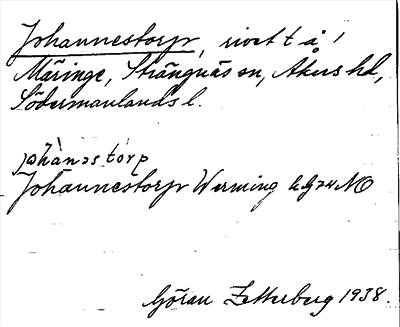 Johannestorp, rivet t å 1
Märinge, Strängnäs sn, Åkers hd,
Södermanlands l.
johànəs tòrp
Johannestorp Werming
Göran Zetterberg 1938.